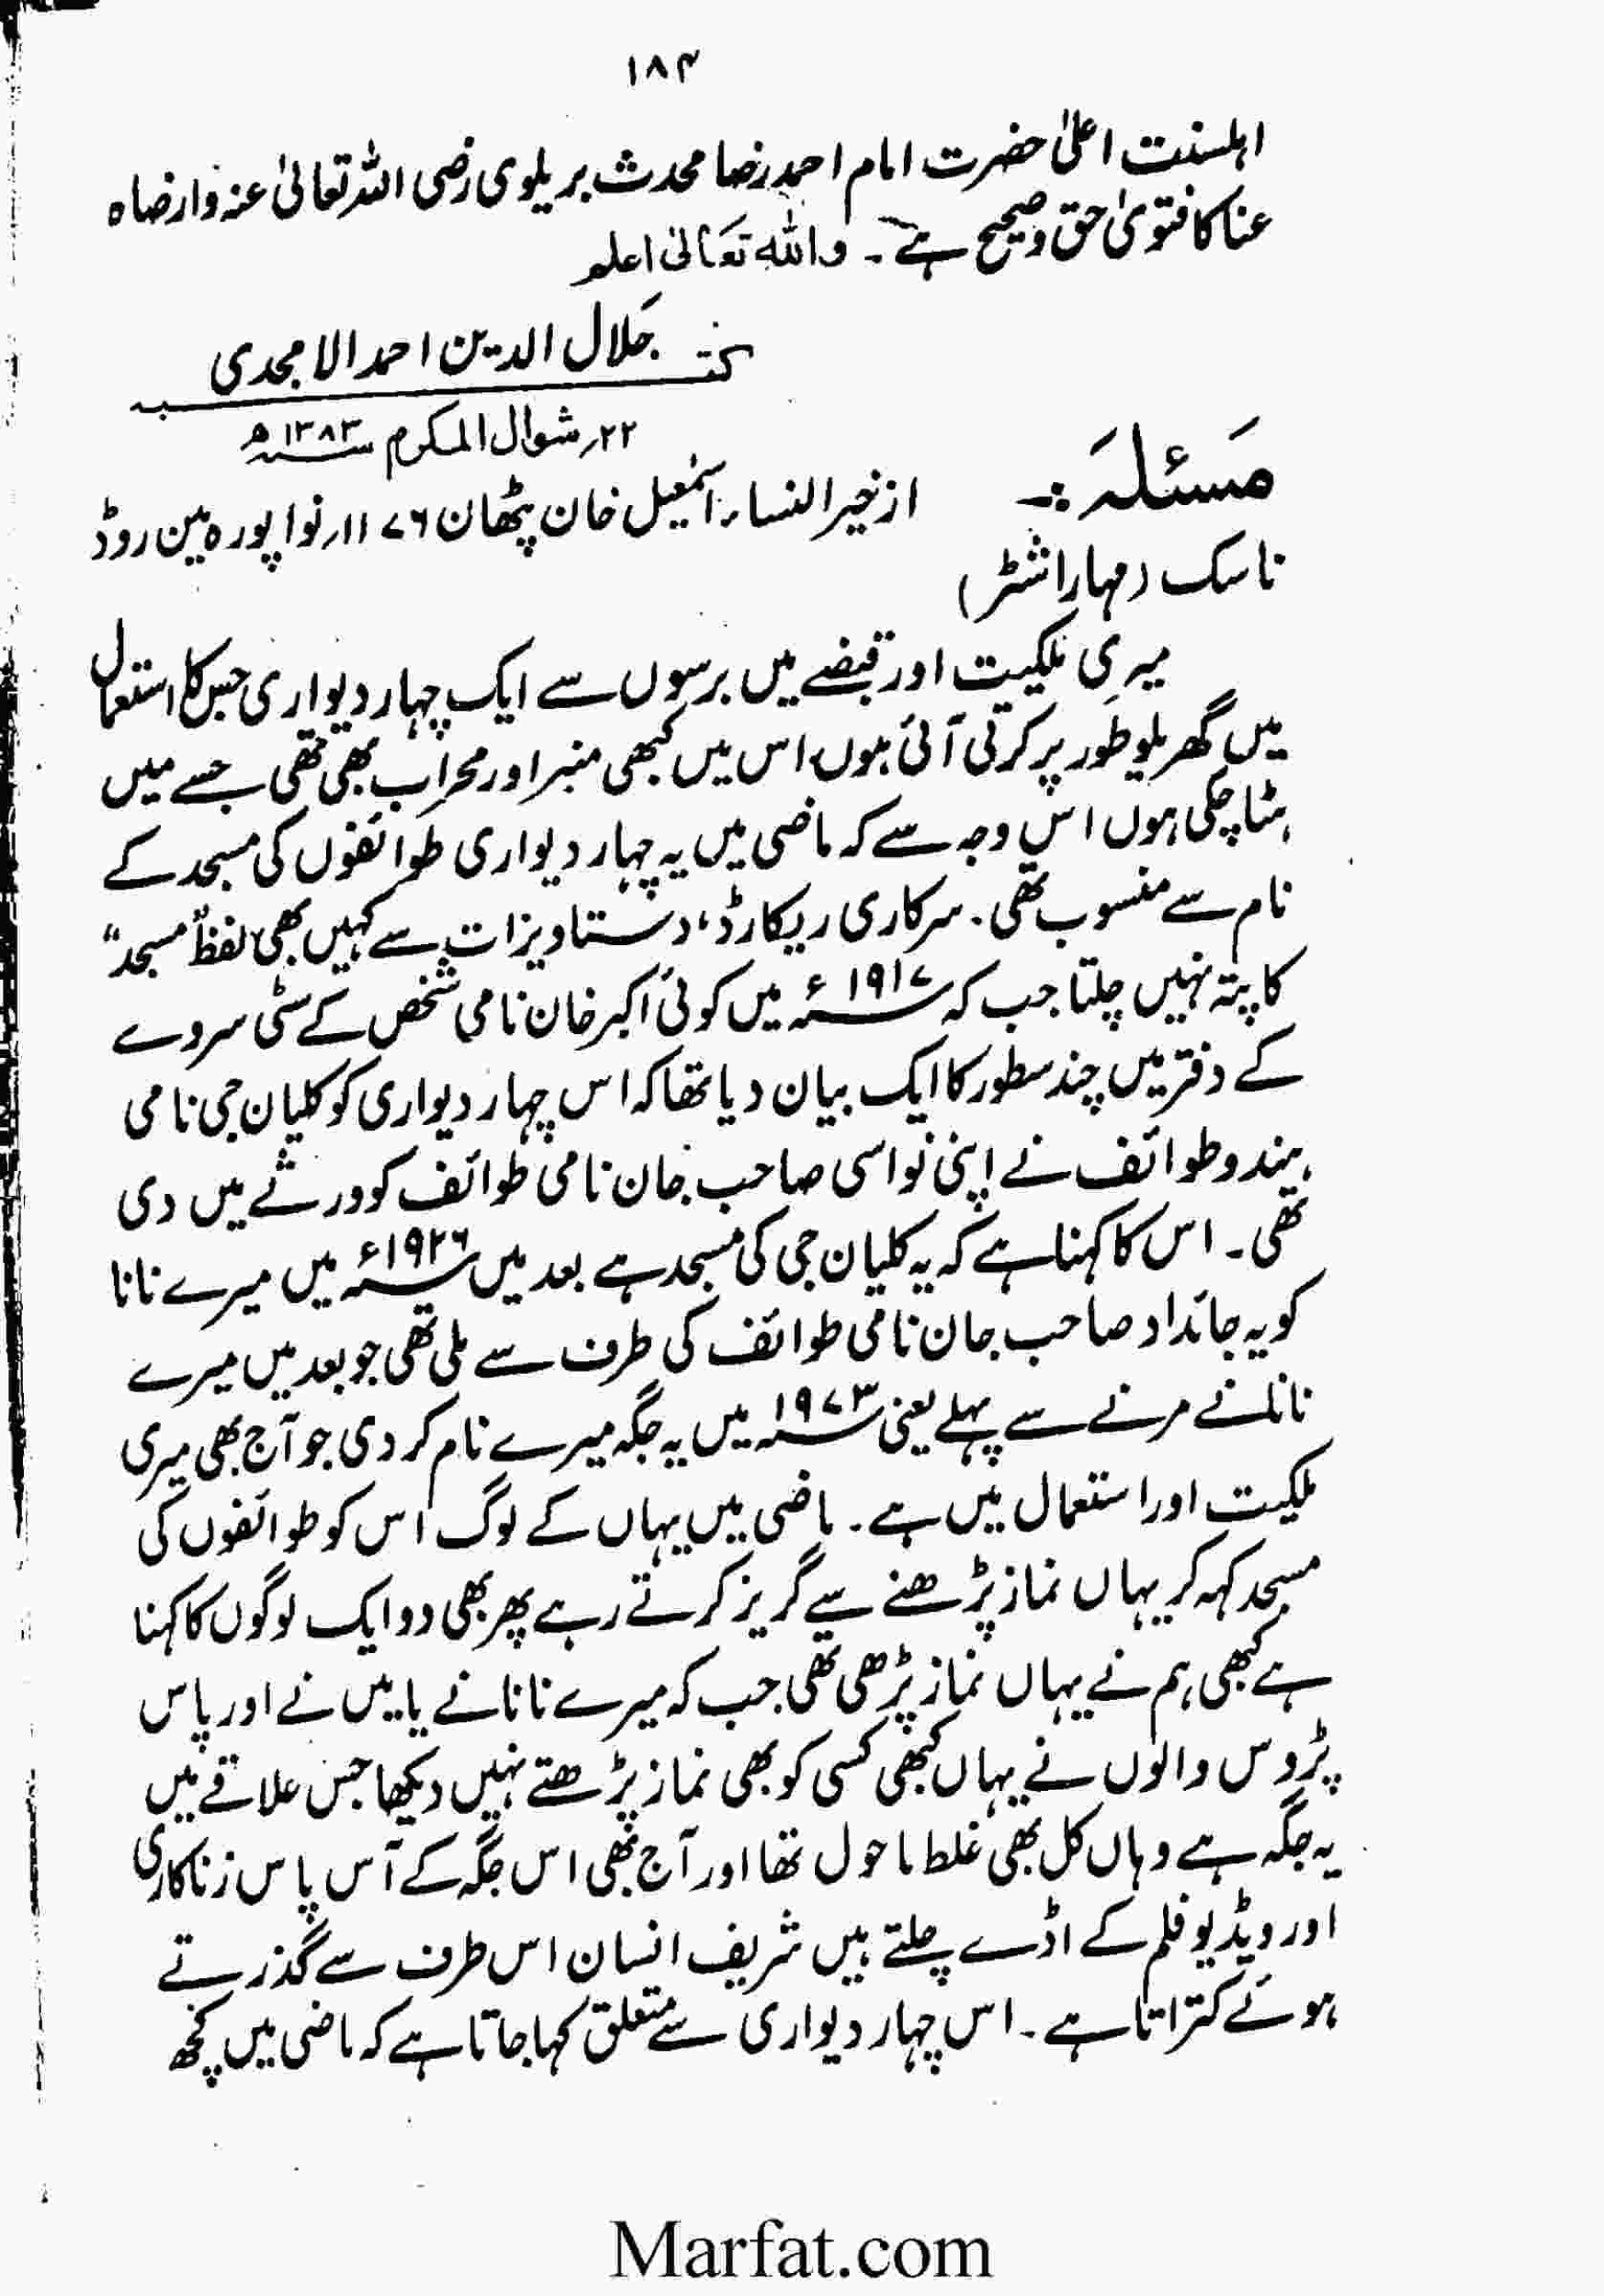 ۱۸۴
اہلسنت اعلیٰ حضرت امام احمد رضا محدث بریلوی رضی اللہ تعالیٰ عنہ وارضاہ
عنا کا فتویٰ حق و صحیح ہے۔ واللہ تعالیٰ اعلم
کتبہ جلال الدین احمد الامجدی
۲۲؍ شوال المکرم ۱۳۸۳ھ
مسئلہ:۔ از خیر النساء اسمٰعیل خان پٹھان ۱۱۷۶؍ نواپورہ مین روڈ
ناسک (مہاراشٹر)
میری ملکیت اور قبضے میں برسوں سے ایک چہار دیواری جس کا استعمال
میں گھریلو طور پر کرتی آئی ہوں، اس میں کبھی منبر اور محراب بھی تھی جسے میں
ہٹا چکی ہوں اس وجہ سے کہ ماضی میں یہ چہار دیواری طوائفوں کی مسجد کے
نام سے منسوب تھی۔ سرکاری ریکارڈ، دستاویزات سے کہیں بھی لفظ "مسجد"
کا پتہ نہیں چلتا جب کہ ۱۹۱۷ء میں کوئی اکبر خان نامی شخص کے سٹی سروے
کے دفتر میں چند سطور کا ایک بیان دیا تھا کہ اس چہار دیواری کو کلیان جی نامی
ہندو طوائف نے اپنی نواسی صاحب جان نامی طوائف کو ورثے میں دی
تھی۔ اس کا کہنا ہے کہ یہ کلیان جی کی مسجد ہے بعد میں ۱۹۲۶ء میں میرے نانا
کو یہ جائداد صاحب جان نامی طوائف کی طرف سے ملی تھی جو بعد میں میرے
نانا نے مرنے سے پہلے یعنی ۱۹۷۳ میں یہ جگہ میرے نام کر دی جو آج بھی میری
ملکیت اور استعمال میں ہے۔ ماضی میں یہاں کے لوگ اس کو طوائفوں کی
مسجد کہہ کر یہاں نماز پڑھنے سے گریز کرتے رہے پھر بھی دو ایک لوگوں کا کہنا
ہے کبھی ہم نے یہاں نماز پڑھی تھی جب کہ میرے نانا نے یا میں نے اور پاس
پڑوس والوں نے یہاں کبھی کسی کو بھی نماز پڑھتے نہیں دیکھا جس علاقے میں
یہ جگہ ہے وہاں کل بھی غلط ماحول تھا اور آج بھی اس جگہ کے آس پاس زنا کاری
اور ویڈیو فلم کے اڈے چلتے ہیں شریف انسان اس طرف سے گذرتے
ہوئے کتراتا ہے۔ اس چہار دیواری سے متعلق کہا جاتا ہے کہ ماضی میں کچھ
Marfat.com